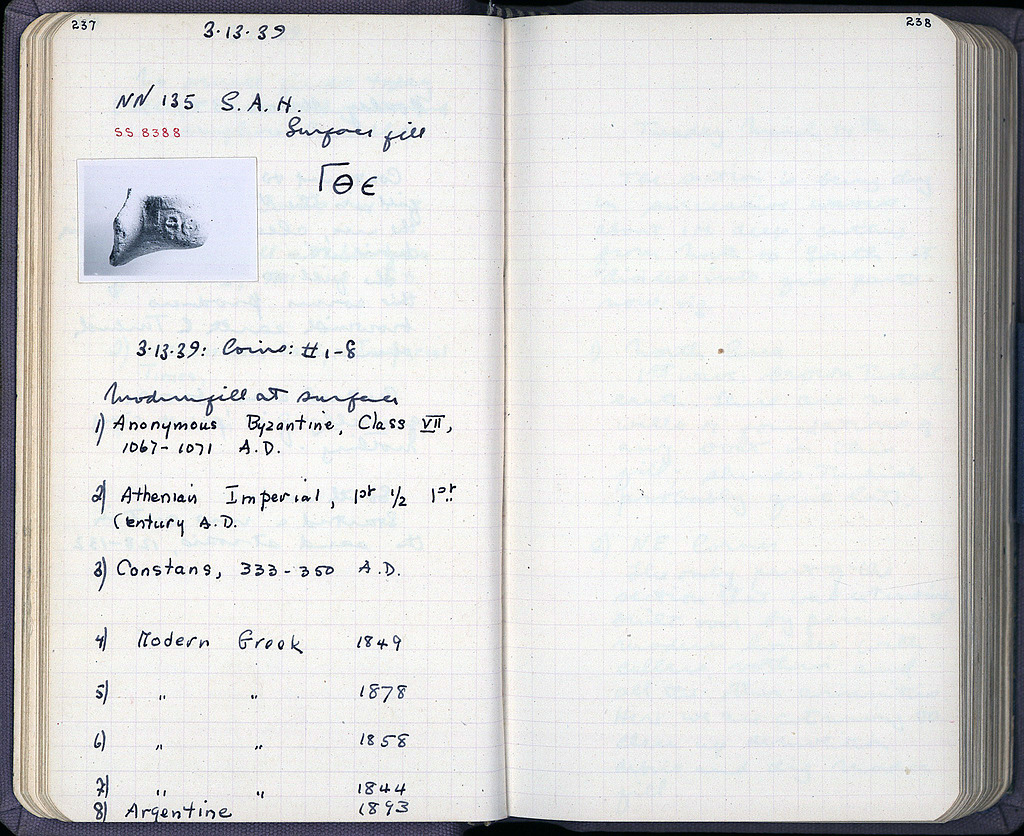 237
3·13·39
NN 135 S.A.H.
SS 8388
Surface fill
ΓΘЄ
3·13·39: Coins: # 1-8
Modern fill at surface
1) Anonymous Byzantine, Class VII,
1067-1071 A.D.
2) Athenian Imperial, 1st 1/2 1st
Century A.D.
3) Constans, 333-350 A.D.
4) Modern Greek 1849
5) " " 1878
6) " " 1858
7) " " 1844
8) Argentine 1893
238